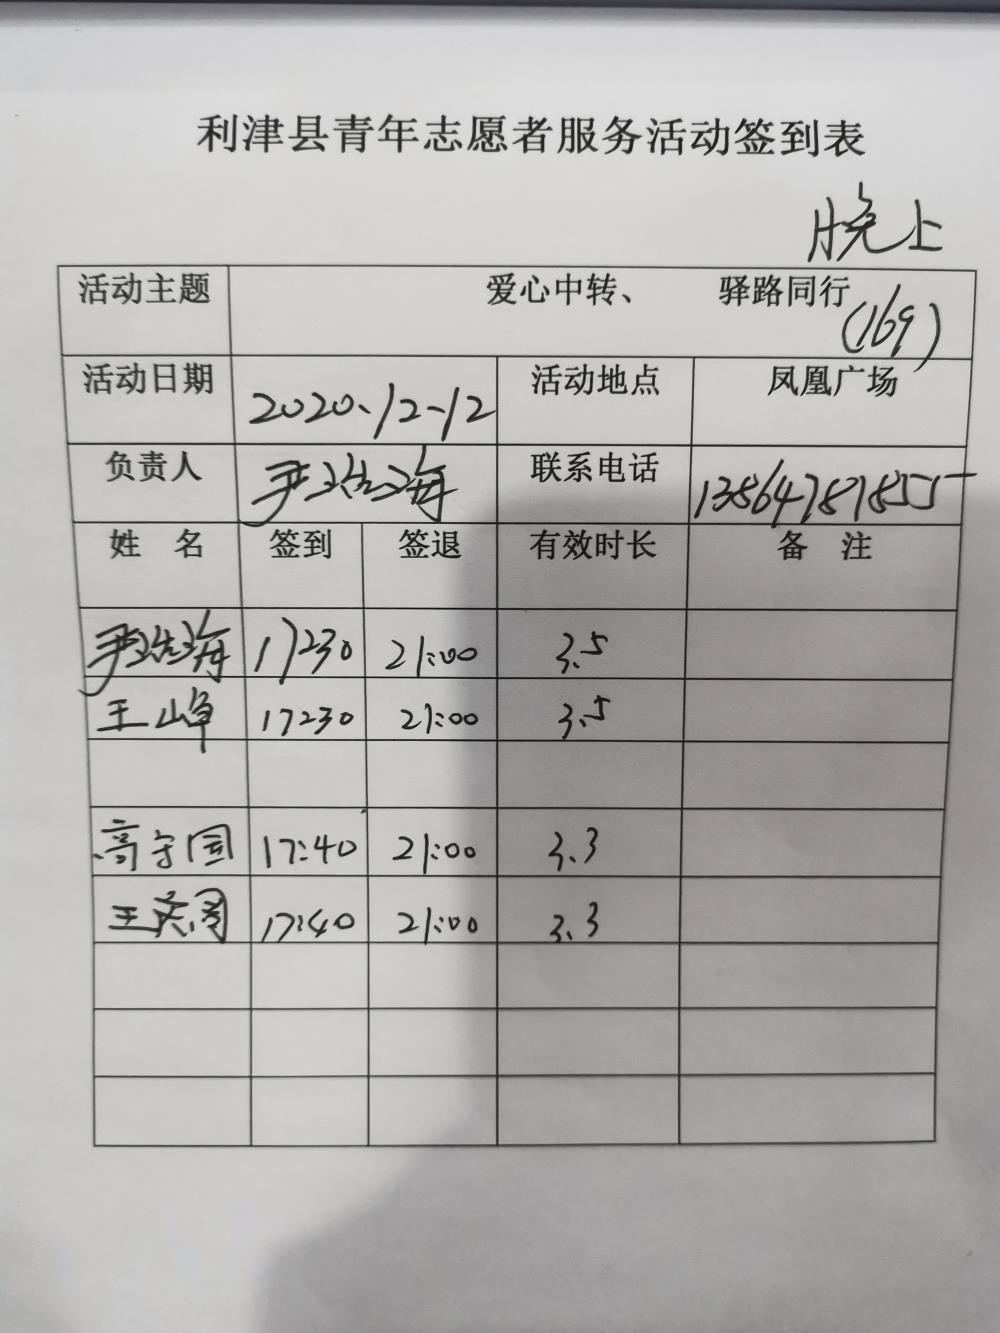 利津县青年志愿者服务活动签到表
晚上
活动主题 爱心中转、 驿路同行 (169)
活动日期 2020.12-12 活动地点 凤凰广场
负责人 尹浩海 联系电话 13864787855
姓 名 签到 签退 有效时长 备 注
尹浩海 17:30 21:00 3.5
王峰 17:30 21:00 3.5
高守国 17:40 21:00 3.3
王 17:40 21:00 3.3